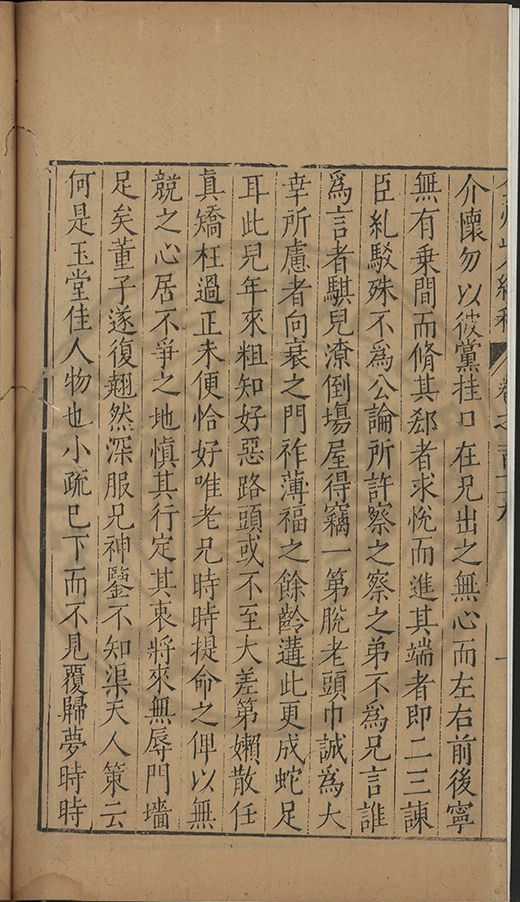 介懷勿以彼黨挂口在兄出之無心而左右前後寧
無有乗間而脩其郄者求恱而進其端者即二三諫
臣糺駁殊不爲公論所許察之察之弟不為兄言誰
爲言者騏兒潦倒塲屋得竊一第脫老頭巾誠為大
幸所慮者向衰之門祚薄福之餘齡遘此更成蛇足
耳此兒年來粗知好惡路頭或不至大差第嬾散任
真矯枉過正未便恰好唯老兄時時提命之俾以無
競之心居不爭之地慎其行定其衷將來無辱門墻
足矣董子遂復翹然深服兄神鑒不知渠天人策云
何是玉堂佳人物也小疏已下而不見覆歸夢時時